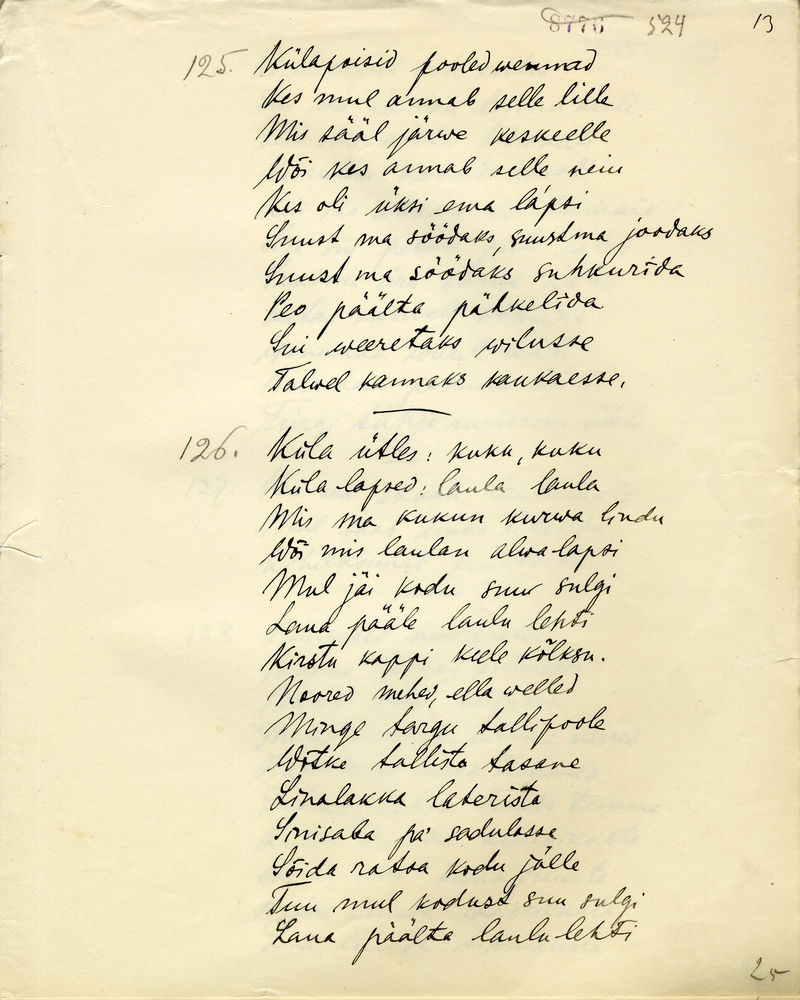 8776 524 13
125. Külapoisid pooled wennad
Kes mul annab selle lille
Mis sääl järwe keskeelle
Wõi kes annab selle neiu
Kes oli üksi ema lapsi
Suust ma söödaks, suustma joodaks
Suust ma söödaks suhkurida
Peo päälta pähkelida
Sui weeretaks wilusse
Talwel kannaks kaukaesse.
126. Küla ütles: kuku, kuku
Küla lapsed: laula laula
Mis ma kukun kurwa lindu
Wõi mis laulan alwa lapsi
Mul jäi kodu suur sulgi
Laua pääle laulu lehti
Kirstu kappi keele kõlksu.
Noored mehed, ella welled
Minge targu tallipoole
Wõtke tallista tasane
Linalakka laterista
Sinisaba pa' sadulassa
Sõida ratsa kodu jälle
Tuu mul kodust suu sulgi
Laua päälta laulu lehti
25